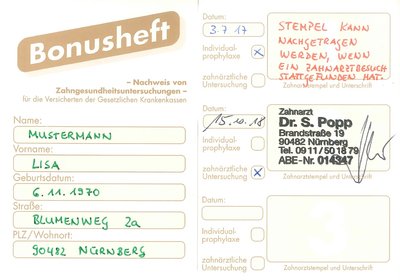 Bonusheft
– Nachweis von
Zahngesundheitsuntersuchungen –
für die Versicherten der Gesetzlichen Krankenkassen
Name:
MUSTERMANN
Vorname:
LISA
Geburtsdatum:
6. 11. 1970
Straße:
BLUMENWEG 2a
PLZ/Wohnort:
90482 NÜRNBERG
Datum:
3.7.17
Individual-
prophylaxe
x
zahnärztliche
Untersuchung
STEMPEL KANN
NACHGETRAGEN
WERDEN, WENN
EIN ZAHNARZTBESUCH
STATTGEFUNDEN HAT.
Zahnarztstempel und Unterschrift
Datum:
15.10.18
Individual-
prophylaxe
zahnärztliche
Untersuchung
x
Zahnarzt
Dr. S. Popp
Brandstraße 19
90482 Nürnberg
Tel. 09 11 / 50 18 79
ABE-Nr. 014347
Zahnarztstempel und Unterschrift
Datum:
Individual-
prophylaxe
zahnärztliche
Untersuchung
3
Zahnarztstempel und Unterschrift